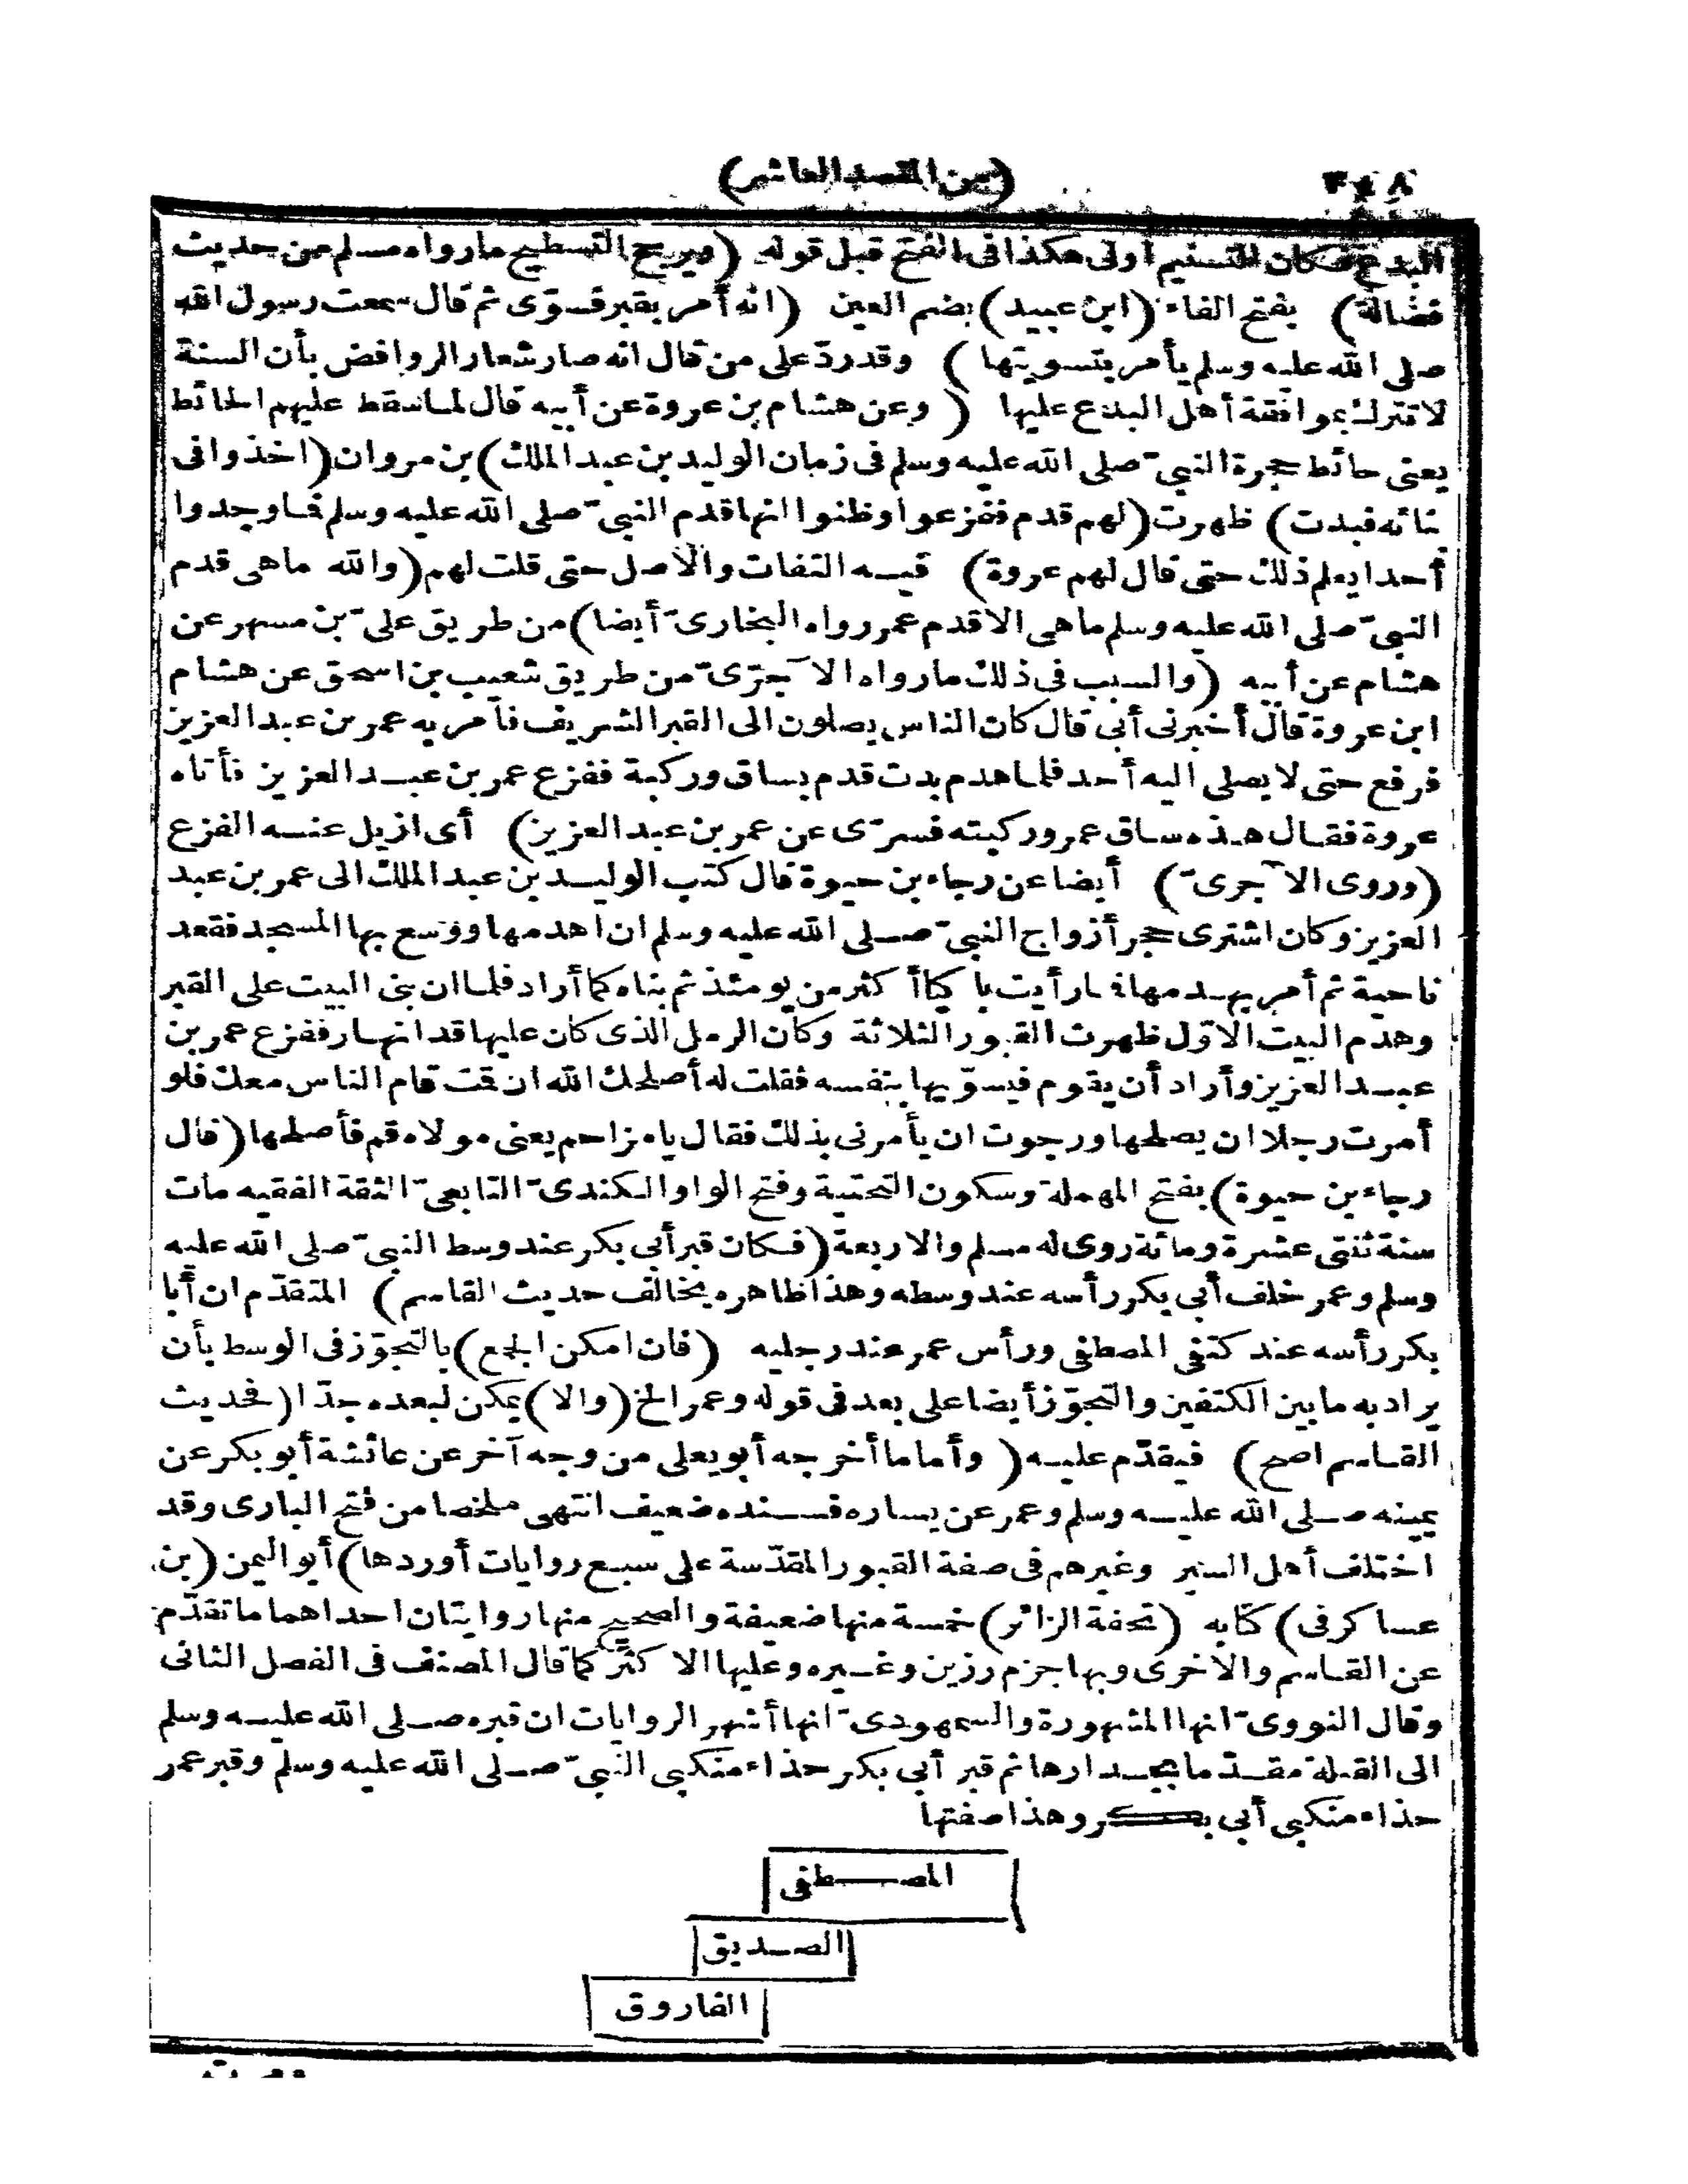 (من المقصد العاشر)
٣٤٨
البدع فكان التسنيم أولى هكذا فى الفتح قبل قوله (ويرجح التسطيح مارواه مسلم من حديث
فضالة) بفتح الفاء (ابن عبيد) بضم العين (انه أمر بقبر فسوّى ثم قال سمعت رسول الله
صلى الله عليه وسلم يأمر بتسويتها) وقدردّ على من قال انه صار شعار الروافض بأن السنة
لا تترك بموافقة أهل البدع عليها (وعن هشام بن عروة عن أبيه قال لما سقط عليهم الحائط
يعنى حائط حجرة النبىّ صلى الله عليه وسلم فى زمان الوليد بن عبد الملك) بن مروان (اخذوا فى
بنائه فبدت) ظهرت (لهم قدم ففزعوا وظنوا انها قدم النبىّ صلى الله عليه وسلم فما وجدوا
أحدا يعلم ذلك حتى قال لهم عروة) فيه التفات والاصل حتى قلت لهم (والله ماهى قدم
النبىّ صلى الله عليه وسلم ماهى الا قدم عمر رواه البخارىّ أيضا) من طريق علىّ بن مسهر عن
هشام عن أبيه (والسبب فى ذلك مارواه الآجرّىّ من طريق شعيب بن اسحق عن هشام
ابن عروة قال أخبرنى أبى قال كان الناس يصلون الى القبر الشريف فأمر به عمر بن عبد العزيز
فرفع حتى لا يصلى اليه أحد فلما هدم بدت قدم بساق وركبة ففزع عمر بن عبد العزيز فأتاه
عروة فقال هذه ساق عمر وركبته فسرّى عن عمر بن عبد العزيز) أى ازيل عنه الفزع
(وروى الآجرىّ) أيضا عن رجاء بن حيوة قال كتب الوليد بن عبد الملك الى عمر بن عبد
العزيز وكان اشترى حجر أزواج النبىّ صلى الله عليه وسلم ان اهدمها ووسع بها المسجد فقعد
ناحية ثم أمر بهدمها فما رأيت باكيا أكثر من يومئذ ثم بناه كما أراد فلما ان بنى البيت على القبر
وهدم البيت الاوّل ظهرت القبور الثلاثة وكان الرمل الذى كان عليها قد انهار ففزع عمر بن
عبد العزيز وأراد أن يقوم فيسوّيها بنفسه فقلت له أصلحك الله ان قمت قام الناس معك فلو
أمرت رجلا ان يصلحها ورجوت ان يأمرنى بذلك فقال يا مزاحم يعنى مولاه قم فأصلحها (قال
رجاء بن حيوة) بفتح المهملة وسكون التحتية وفتح الواو الكندىّ التابعىّ الثقة الفقيه مات
سنة ثنتى عشرة ومائة روى له مسلم والاربعة (فكان قبر أبى بكر عند وسط النبىّ صلى الله عليه
وسلم وعمر خلف أبى بكر رأسه عند وسطه وهذا ظاهره يخالف حديث القاسم) المتقدّم ان أبا
بكر رأسه عند كتفى المصطفى ورأس عمر عند رجليه (فان امكن الجمع) بالتجوّز فى الوسط بأن
يراد به ما بين الكتفين والتجوّز أيضا على بعد فى قوله وعمر الخ (والا) يمكن لبعده جدّا (فحديث
القاسم اصح) فيقدّم عليه (وأما ما أخرجه أبو يعلى من وجه آخر عن عائشة أبو بكر عن
يمينه صلى الله عليه وسلم وعمر عن يساره فسنده ضعيف انتهى ملخصا من فتح البارى وقد
اختلف أهل السير وغيرهم فى صفة القبور المقدّسة على سبع روايات أوردها) أبو اليمن (بن
عساكر فى) كتابه (تحفة الزائر) خمسة منها ضعيفة والصحيح منها روايتان احداهما ما تقدّم
عن القاسم والاخرى وبها جزم رزين وغيره وعليها الاكثر كما قال المصنف فى الفصل الثانى
وقال النووىّ انها المشهورة والسمهودىّ انها أشهر الروايات ان قبره صلى الله عليه وسلم
الى القبلة مقدّما بجدارها ثم قبر أبى بكر حذاء منكبى النبىّ صلى الله عليه وسلم وقبر عمر
حذاء منكبى أبى بكر وهذا صفتها
المصطفى
الصديق
الفاروق